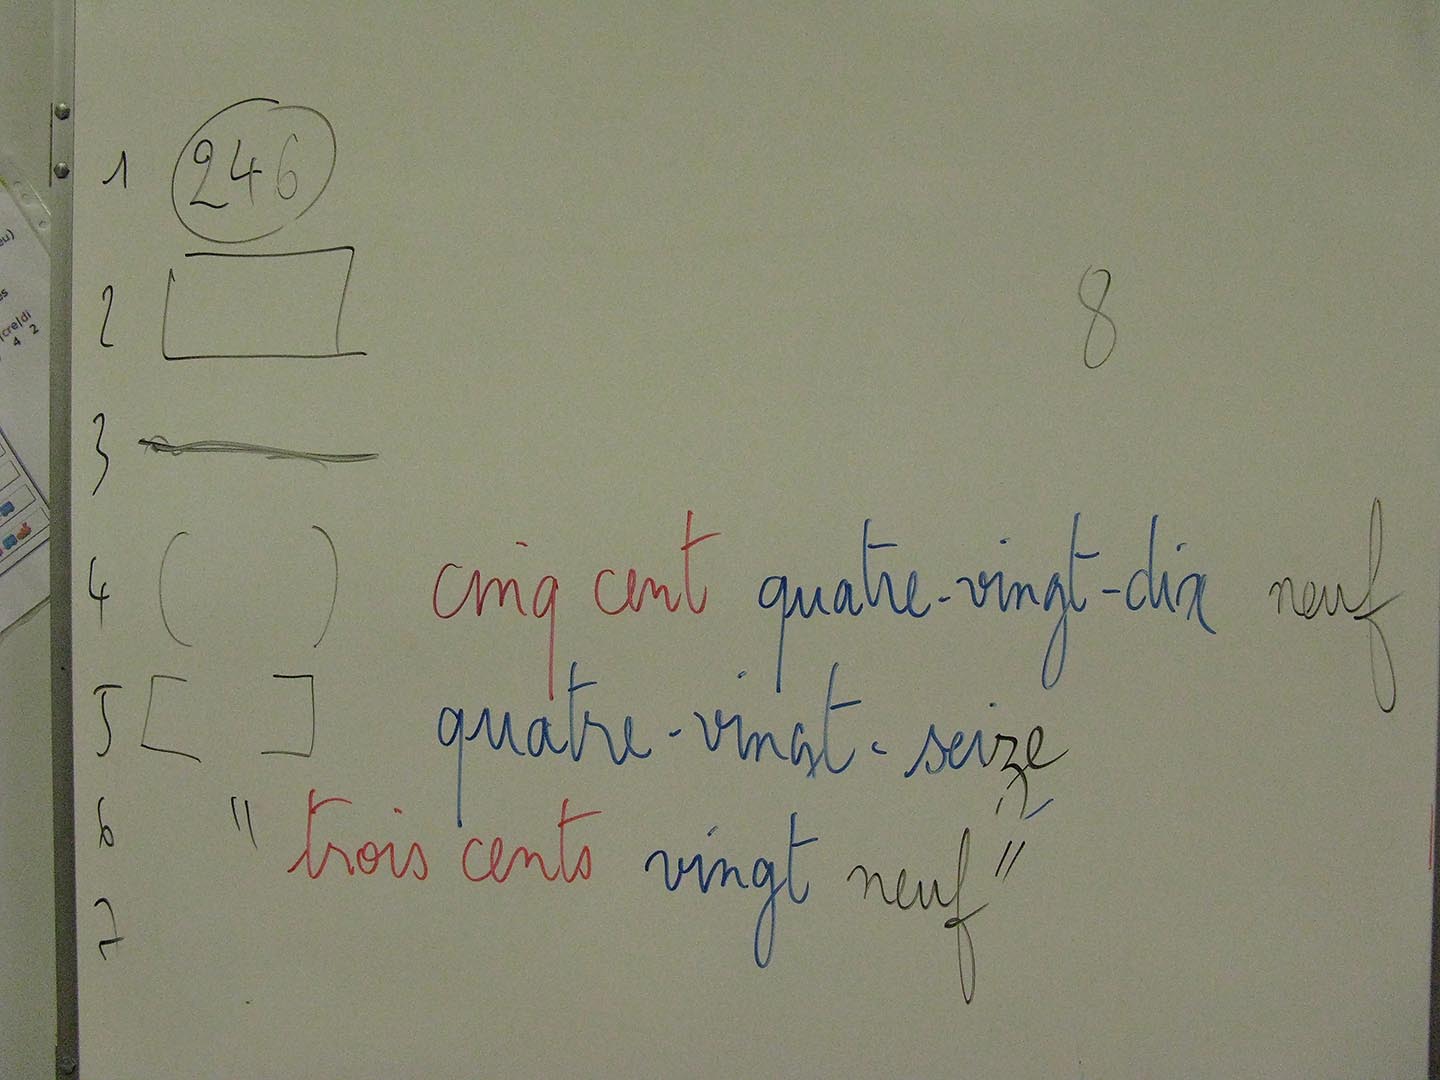 1 246
2
8
3
4 ( ) cinq cent quatre-vingt-dix neuf
5 [ ] quatre-vingt-seize
6 "trois cents vingt neuf"
7
eu)
es
cre/di
4 2